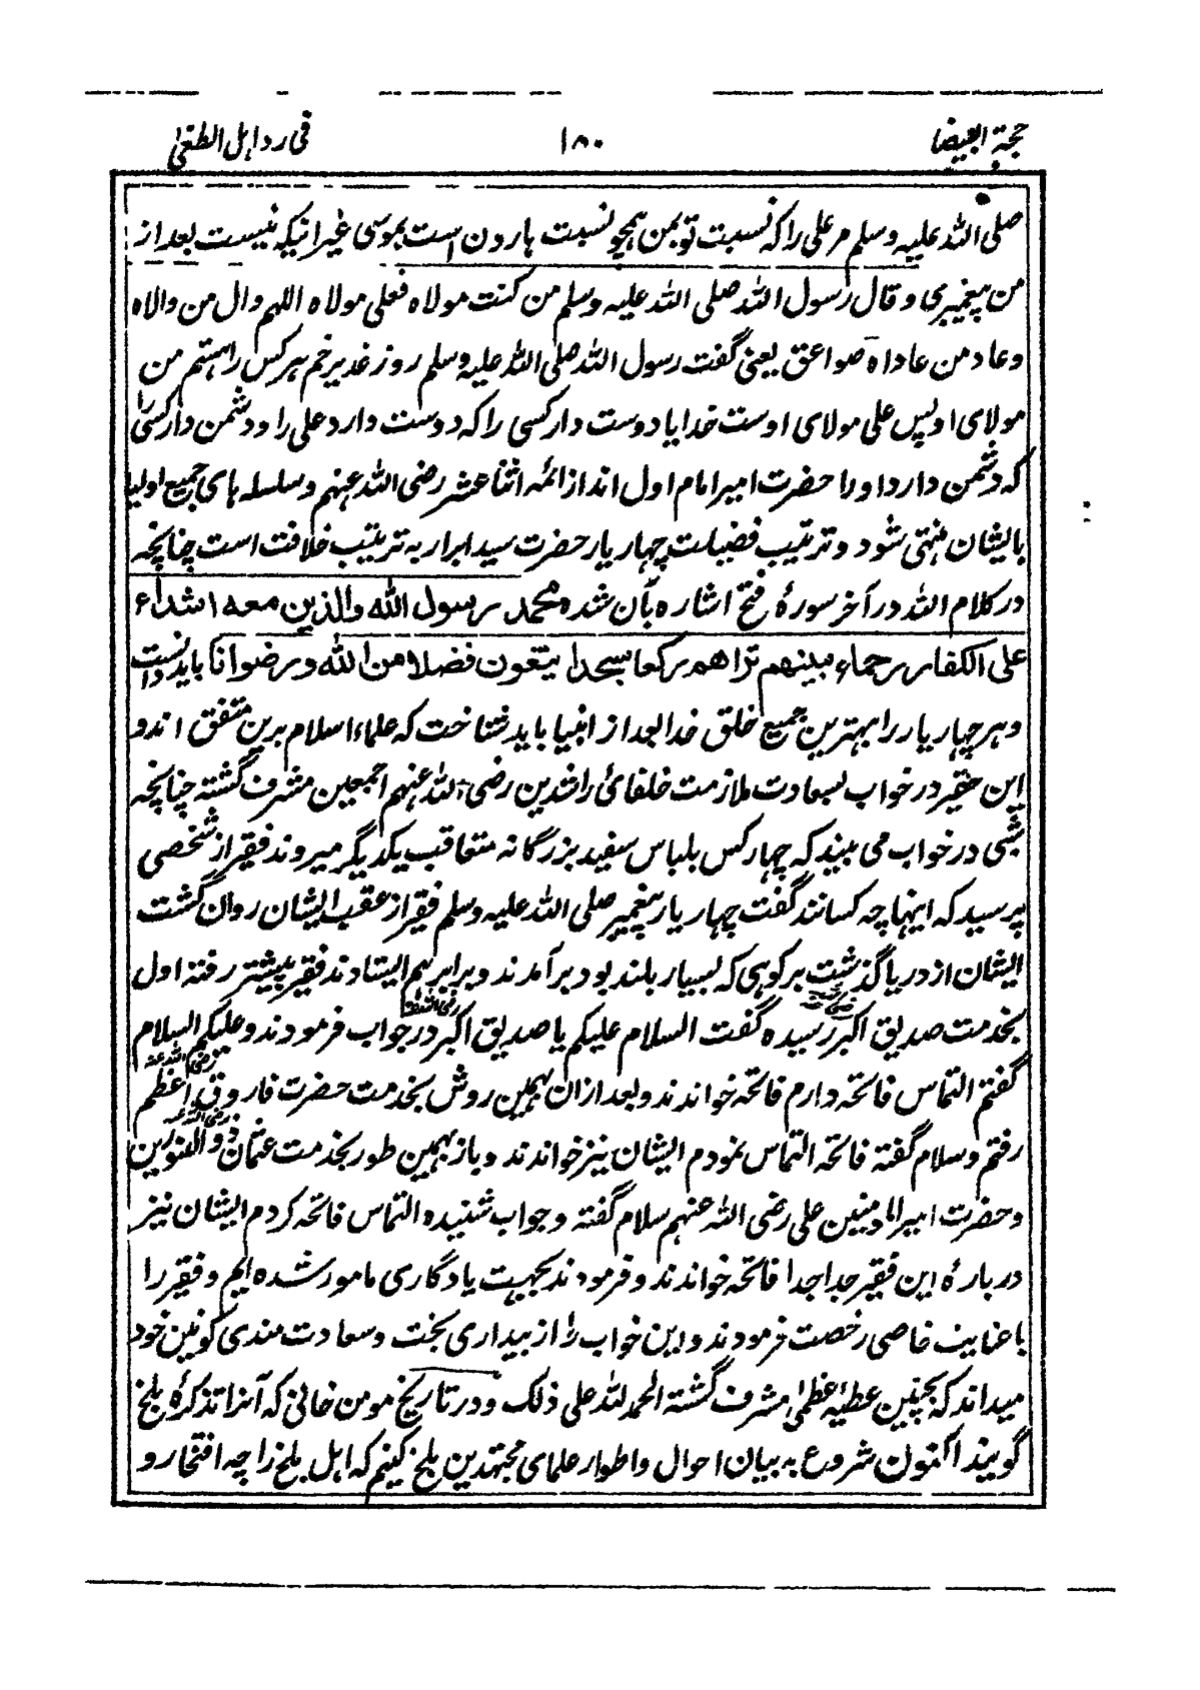 حجة البیضا ۱۸۰ فی رد اہل الطغیٰ
صلی اللہ علیہ وسلم مر علی را کہ نسبت تو بمن ہمچو نسبت ہارون است بموسی غیر انیکہ نیست بعد از
من پیغمبری و قال رسول اللہ صلی اللہ علیہ وسلم من کنت مولاہ فعلی مولاہ اللہم وال من والاہ
و عاد من عاداہ صواعق یعنی گفت رسول اللہ صلی اللہ علیہ وسلم روز غدیر خم ہر کس را ہستم من
مولای او پس علی مولای اوست خدایا دوست دار کسی را کہ دوست دارد علی را و دشمن دار کسی را
کہ دشمن دارد او را حضرت امیر امام اول اند از ائمہ اثنا عشر رضی اللہ عنہم و سلسلہ ہای جمیع اولیا
بالیشان منتہی شود و ترتیب فضیلت چہار یار حضرت سید ابرار بہ ترتیب خلافت است چنانچہ
در کلام اللہ در آخر سورۂ فتح اشارہ بآن شدہ محمد رسول اللہ والذین معہ اشداء
علی الکفار رحماء بینہم تراھم رکعا سجدا یبتغون فضلا من اللہ ورضوانا باید دانست
و ہر چہار یار را بہترین جمیع خلق خدا بعد از انبیا باید شناخت کہ علماء اسلام برین متفق اند و
این حقیر در خواب بسعادت ملازمت خلفائ راشدین رضی اللہ عنہم اجمعین مشرف گشتہ چنانچہ
شبی در خواب می بیند کہ چہار کس بلباس سفید بزرگانہ متعاقب یکدیگر میروند فقیر از شخصی
پرسید کہ اینہا چہ کسانند گفت چہار یار پیغمبر صلی اللہ علیہ وسلم فقیر از عقب ایشان روان گشت
ایشان از دریا گذشت بر کوہی کہ بسیار بلند بود بر آمدند و برابر ہم ایستادند فقیر پیشتر رفتہ اول
بخدمت صدیق اکبر رسیدہ گفت السلام علیکم یا صدیق اکبر رضی اللہ عنہ در جواب فرمودند و علیکم السلام
گفتم التماس فاتحہ دارم فاتحہ خواندند و بعد ازان بہمین روش بخدمت حضرت فاروق اعظم رضی اللہ عنہ
رفتم و سلام گفتہ فاتحہ التماس نمودم ایشان نیز خواندند و باز بہمین طور بخدمت عثمان ذو النورین رضی اللہ عنہ
و حضرت امیر المومنین علی رضی اللہ عنہم سلام گفتہ و جواب شنیدہ التماس فاتحہ کردم ایشان نیز
دربارۂ این فقیر جدا جدا فاتحہ خواندند و فرمودند بجہت یادگاری مامور شدہ ایم و فقیر را
با عنایت خاصی رخصت فرمودند و این خواب را از بیداری بخت و سعادت مندی کونین خود
میداند کہ بچنین عطیہ عظمیٰ مشرف گشتہ الحمد للہ علی ذلک و در تاریخ مومن خانی کہ آنرا تذکرۂ بلخ
گویند اکنون شروع بہ بیان احوال و اطوار علمای مجتہدین بلخ کنیم کہ اہل بلخ را چہ افتخار و